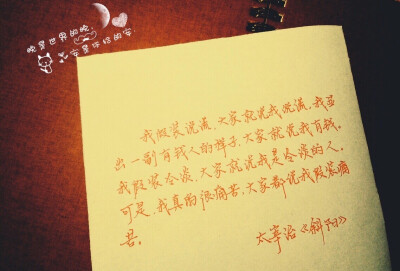 晚是世界的晚
安是你给的安
我假装说谎,大家就说我说谎,我显
出一副有钱人的样子,大家就说我有钱,
我假装冷淡,大家就说我是冷淡的人,
可是,我真的很痛苦,大家都说我假装痛
苦。
太宰治《斜阳》